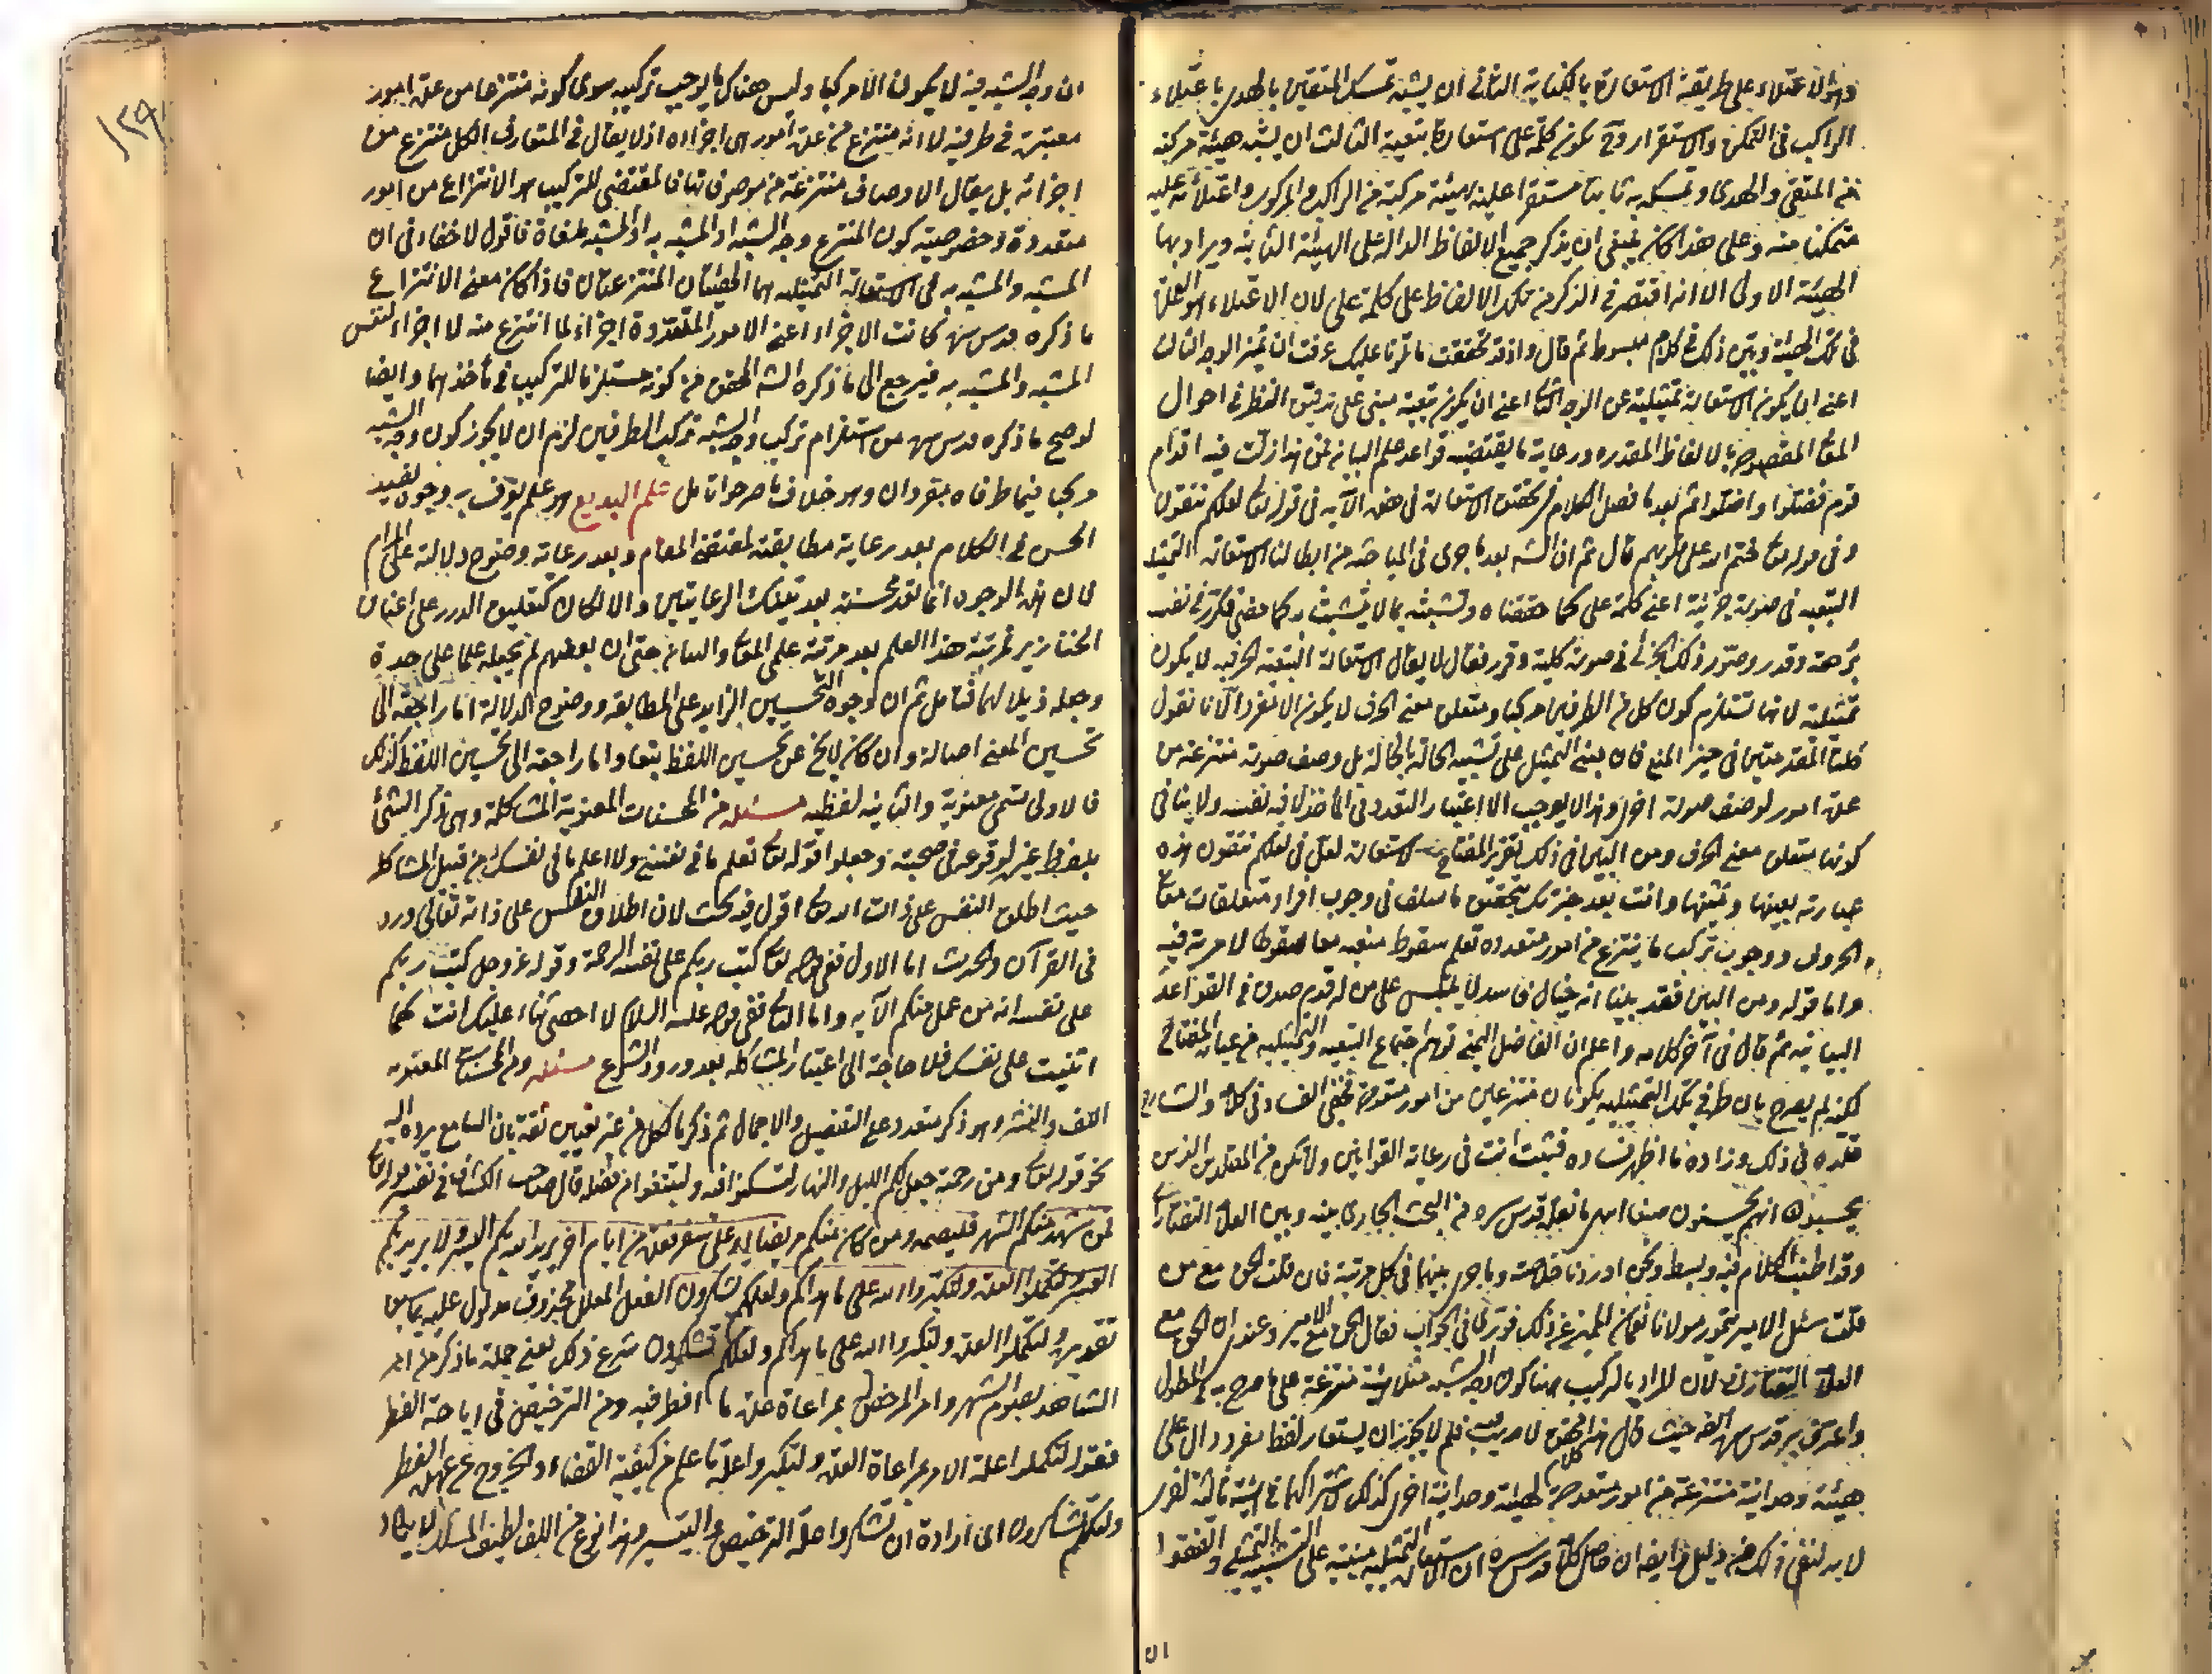 الاعتلاء على طريقة الاستعارة بالكناية الثاني ان يشبه تمسك المتقين بالهدى باعتلاء
الراكب في التمكن والاستقرار وح يكون كلمة على استعارة تبعية الثالث ان يشبه هيئة مركبة
من المتقي والهدى وتمسكه به ثابتا مستقرا عليه بهيئة مركبة من الراكب والمركوب واعتلائه عليه
متمكنا منه وعلى هذا كان ينبغي ان يذكر جميع الالفاظ الدالة على الهيئة الثانية ويراد بها
الهيئة الاولى الا انه اقتصر في الذكر من تلك الالفاظ على كلمة على لان الاعتلاء هو العمدة
في تلك الهيئة وبين ذلك في كلام مبسوط ثم قال واذ قد تحققت ما تلونا عليك عرفت ان تميز الوجه الثالث
اعني ان يكون الاستعارة تمثيلية عن الوجه الثاني اعني ان يكون تبعية مبني على تدقيق النظر في احوال
المعاني المقصودة بالالفاظ المقدره ورعاية ما يقتضيه قواعد علم البيان فمن هذا زلت فيه اقدام
قوم فضلوا واضلوا ثم بعد ما فصل الكلام في تحقيق الاستعارة في هذه الآية في قوله تع لعلكم تتقون
وفي قوله تع ختم الله على قلوبهم قال ثم ان الشه بعد ما جرى في المباحثة من ابطالنا الاستعارة التمثيلية
التبعية في صورة جزئية اعني كلمة على كما حققناه وتشبثه بما لا يتشبث به كما مضى فكر في نفسه
برهة وقدر وصور ذلك الجزئي في صورة كلية وقرر فقال لا يقال الاستعارة التبعية الحرفية لا يكون
تمثيلية لانها تستلزم كون كل من الطرفين مركبا ومتعلق معنى الحرف لا يكون الا مفردا لانا نقول
كلتا المقدمتين في حيز المنع فان مبنى التمثيل على تشبيه الحالة بالحالة بل وصف صورة منتزعة من
عدة امور لوصف صورة اخرى وهذا لا يوجب الا اعتبار التعدد في المأخذ لا فيه نفسه ولا ينافي
كونها متعلق معنى الحرف ومن البين في ذلك تقرير المفتاح لاستعارة لعل في لعلكم تتقون هذه
عبارته بعينها وانت بعد خبرتك بتحقيق ما سلف في وجوب افراد متعلقات معاني
الحروف ووجوب تركب ما ينتزع من امور متعدده تعلم سقوط منعيه معا سقوطا لا مرية فيه
واما قوله ومن البين فقد بينا انه خيال فاسد لا يلتبس على من له قدم صدق في القواعد
البيانية ثم قال في آخر كلامه واعلم ان الفاضل اليمني توهم اجتماع التبعية والتمثيلية من عبارة المفتاح
لكنه لم يصرح بان طرفي تلك التمثيلية يكونان منتزعين من امور متعددة فخفي الفساد في كلامه والشارح
قلده في ذلك وزاده ما اظهر فساده فتثبت انت في رعاية القوانين ولا تكن من المقلدين الذين
يحسبون انهم يحسنون صنعا انتهى ما نقله قدس سره من البحث الجاري بينه وبين العلامة التفتازاني
وقد اطنب الكلام فيه وبسط ونحن اوردنا خلاصته وما جرى بينهما في كل مرتبة فان قلت الحق مع من
قلت سئل الامير تيمور مولانا نعمان المعتزلي عن ذلك فتوركا في الجواب فقال الحق مع الامير وعندي ان الحق مع
العلامة التفتازاني لان المراد بالتركيب هنا كون وجه الشبه مثلا هيئة منتزعة على ما صرح به في المطول
واعترف به قدس سره ايضا حيث قال هذا محقق لا مريب فلم لا يجوز ان يستعار لفظ مفرد دال على
هيئة وحدانية منتزعة من امور متعددة لهيئة وحدانية اخرى كذلك لاشتراكهما في هيئة ثالثة اخرى
لا بد لنفي ذلك من دليل وايضا ان حاصل كلامه قدس سره ان الاستعارة التمثيلية مبنية على التشبيه التمثيلي واتفقوا
ان
١٢٩
ان وجه الشبه فيه لا يكون الا مركبا وليس هناك ما يوجب تركيبه سوى كونه منتزعا من عدة امور
معتبرة في طرفيه لا انه منتزع من عدة امور هي اجزاؤه اذ لا يقال في المتعارف الكل منتزع من
اجزائه بل يقال الاوصاف منتزعة من موصوفاتها فالمقتضى للتركيب هو الانتزاع من امور
متعددة وخصوصية كون المنتزع وجه الشبه او المشبه به او المشبه ملغاة فاقول لا خفاء في ان
المشبه والمشبه به في الاستعارة التمثيلية هما الهيئتان المنتزعتان فاذا كان معنى الانتزاع
ما ذكره قدس سره كانت الاجزاء اعني الامور المتعددة اجزاء لما انتزع منه لا اجزاء لنفس
المشبه والمشبه به فيرجع الى ما ذكره الشه المحقق من كونه مستلزما للتركيب في مأخذهما وايضا
لو صح ما ذكره قدس سره من استلزام تركيب وجه الشبه تركيب الطرفين لزم ان لا يجوز كون وجه الشبه
مركبا فيما طرفاه مفردان وهو خلاف ما صرحوا تأمل علم البديع هو علم يعرف به وجوه تفيد
الحسن في الكلام بعد رعاية مطابقته لمقتضى المقام وبعد رعاية وضوح دلالته على المرام
لان هذه الوجوه انما تعد محسنة بعد تينك الرعايتين والا لكان كتعليق الدرر على اعناق
الخنازير فمرتبة هذا العلم بعد مرتبة علمي المعاني والبيان حتى ان بعضهم لم يجعله علما على حدة
وجعله ذيلا لهما فتأمل ثم ان وجوه التحسين الزايد على المطابقة ووضوح الدلالة اما راجعة الى
تحسين المعنى اصالة وان كان لا يخ عن تحسين اللفظ تبعا واما راجعة الى تحسين اللفظ كذلك
فالاولى تسمى معنوية والثانية لفظية مسئله من المحسنات المعنوية المشاكلة وهي ذكر الشئ
بلفظ غيره لوقوعه في صحبته وجعلوا قوله تع تعلم ما في نفسي ولا اعلم ما في نفسك من قبيل المشاكلة
حيث اطلق النفس على ذات الله تع اقول فيه بحث لان اطلاق النفس على ذاته تعالى ورد
في القرآن والحديث اما الاول ففي قوله تع كتب ربكم على نفسه الرحمة وقوله عز وجل كتب ربكم
على نفسه انه من عمل منكم الآيه واما الثاني ففي قوله عليه السلام لا احصي ثناء عليك انت كما
اثنيت على نفسك فلا حاجة الى اعتبار المشاكلة بعد ورود الشرع مسئله ومن المحسنات المعنوية
اللف والنشر وهو ذكر متعدد على التفصيل والاجمال ثم ذكر ما لكل من غير تعيين ثقة بان السامع يرده اليه
نحو قوله تع ومن رحمته جعل لكم الليل والنهار لتسكنوا فيه ولتبتغوا من فضله قال صاحب الكشاف في تفسير قوله تع
فمن شهد منكم الشهر فليصمه ومن كان منكم مريضا او على سفر فعدة من ايام اخر يريد الله بكم اليسر ولا يريد بكم
العسر ولتكملوا العدة ولتكبروا الله على ما هداكم ولعلكم تشكرون الفعل المعلل محذوف مدلول عليه بما سبق
تقديره ولتكملوا العدة ولتكبروا الله على ما هداكم ولعلكم تشكرون شرع ذلك يعني جملة ما ذكر من امر
الشاهد بصوم الشهر وامر المرخص له بمراعاة عدة ما افطر فيه ومن الترخيص في اباحة الفطر
فقوله لتكملوا علة الامر بمراعاة العدة ولتكبروا علة ما علم من كيفية القضاء والخروج عن عهدة الفطر
ولعلكم تشكرون اي ارادة ان تشكروا علة الترخيص والتيسير وهذا نوع من اللف لطيف المسلك لا يكاد